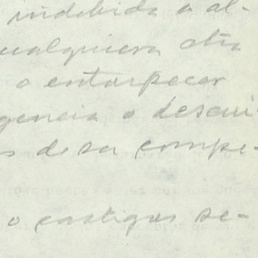 indebida o al-
ualquiera otra
o entorpecer
gencia o descui
s de su compe-
o castigos se-